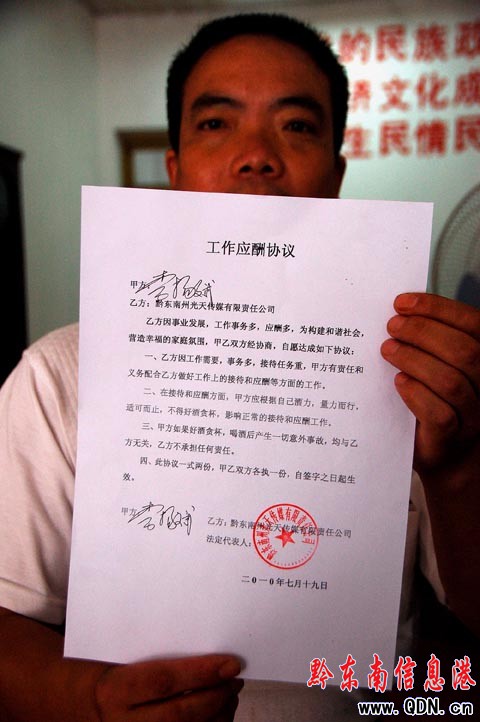 的民族政
济文化成
生民情民
工作应酬协议
甲方:
乙方：黔东南州光天传媒有限责任公司
乙方因事业发展，工作事务多，应酬多，为构建和谐社会，
营造幸福的家庭氛围，甲乙双方经协商，自愿达成如下协议：
一、乙方因工作需要，事务多，接待任务重，甲方有责任和
义务配合乙方做好工作上的接待和应酬等方面的工作。
二、在接待和应酬方面，甲方应根据自己酒力，量力而行，
适可而止，不得好酒贪杯，影响正常的接待和应酬工作。
三、甲方如果好酒贪杯，喝酒后产生一切意外事故，均与乙
方无关，乙方不承担任何责任。
四、此协议一式两份，甲乙双方各执一份，自签字之日起生
效。
甲方:
乙方：黔东南州光天传媒有限责任公司
法定代表人：
黔东南州光天传媒有限责任公司
二0一0年七月十九日
黔东南信息港
www.QDN.cn